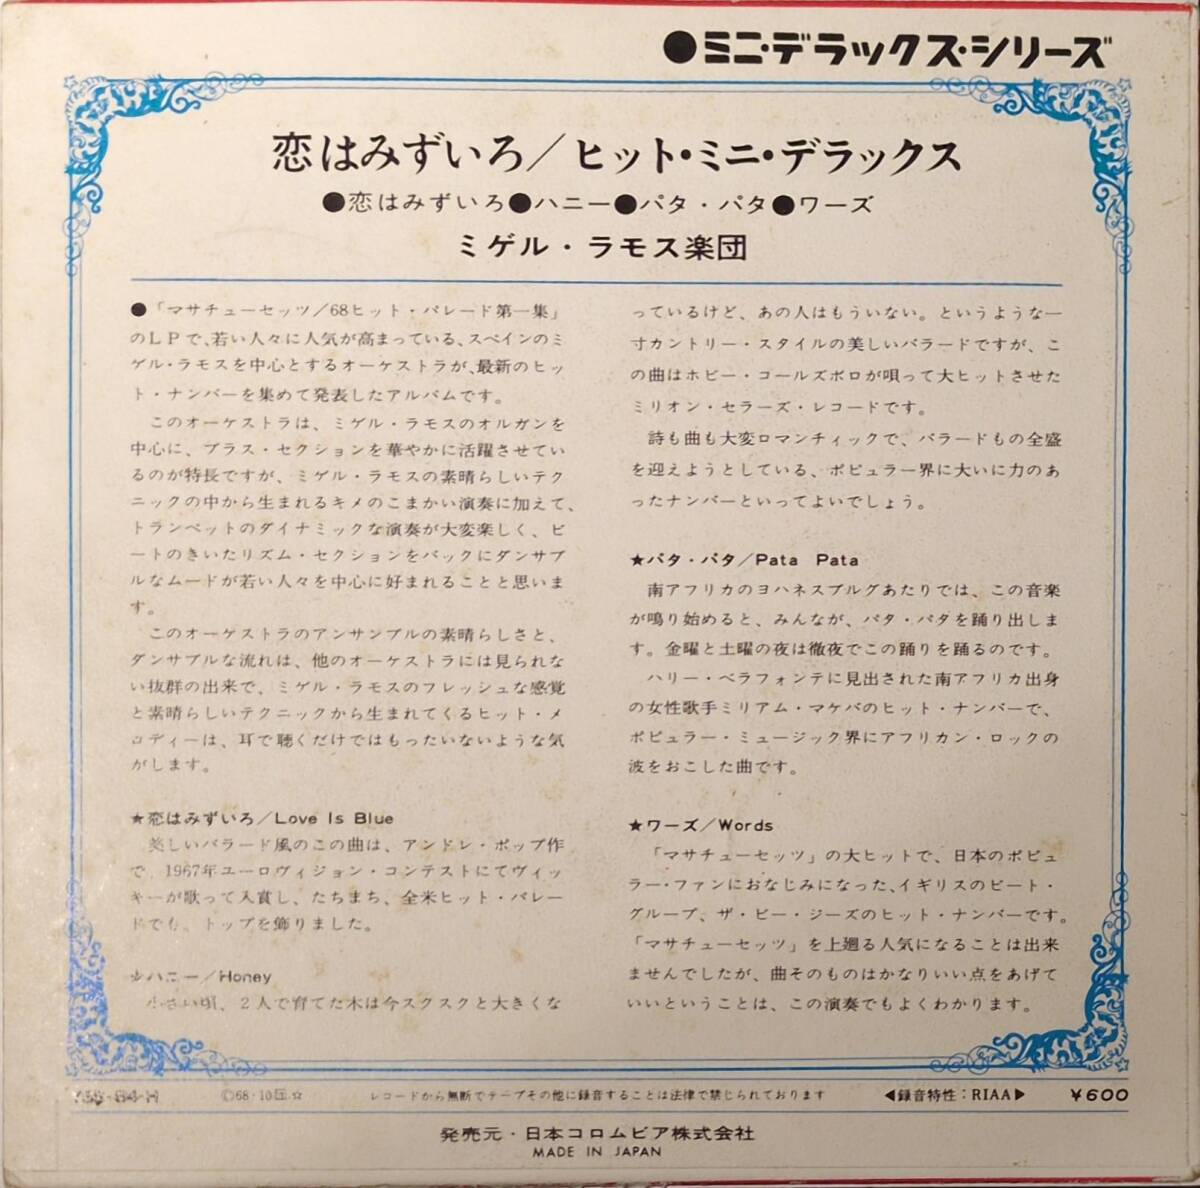 ●ミニ・デラックス・シリーズ
恋はみずいろ／ヒット・ミニ・デラックス
●恋はみずいろ●ハニー●パタ・パタ●ワーズ
ミゲル・ラモス楽団
●「マサチューセッツ／68ヒット・パレード第一集」
のＬＰで、若い人々に人気が高まっている、スペインのミ
ゲル・ラモスを中心とするオーケストラが、最新のヒッ
ト・ナンバーを集めて発表したアルバムです。
このオーケストラは、ミゲル・ラモスのオルガンを
中心に、ブラス・セクションを華やかに活躍させてい
るのが特長ですが、ミゲル・ラモスの素晴らしいテク
ニックの中から生まれるキメのこまかい演奏に加えて、
トランペットのダイナミックな演奏が大変楽しく、ビ
ートのきいたリズム・セクションをバックにダンサブ
ルなムードが若い人々を中心に好まれることと思いま
す。
このオーケストラのアンサンブルの素晴らしさと、
ダンサブルな流れは、他のオーケストラには見られな
い抜群の出来で、ミゲル・ラモスのフレッシュな感覚
と素晴らしいテクニックから生まれてくるヒット・メ
ロディーは、耳で聴くだけではもったいないような気
がします。
★恋はみずいろ／Love Is Blue
美しいバラード風のこの曲は、アンドレ・ポップ作
で、1967年ユーロヴィジョン・コンテストにてヴィッ
キーが歌って入賞し、たちまち、全米ヒット・パレー
ドでも、トップを飾りました。
★ハニー／Honey
小さい頃、２人で育てた木は今スクスクと大きくな
っているけど、あの人はもういない。というような一
寸カントリー・スタイルの美しいバラードですが、こ
の曲はホビー・ゴールズボロが唄って大ヒットさせた
ミリオン・セラーズ・レコードです。
詩も曲も大変ロマンチィックで、バラードもの全盛
を迎えようとしている、ポピュラー界に大いに力のあ
ったナンバーといってよいでしょう。
★パタ・パタ／Pata Pata
南アフリカのヨハネスブルグあたりでは、この音楽
が鳴り始めると、みんなが、パタ・パタを踊り出しま
す。金曜と土曜の夜は徹夜でこの踊りを踊るのです。
ハリー・ベラフォンテに見出された南アフリカ出身
の女性歌手ミリアム・マケバのヒット・ナンバーで、
ポピュラー・ミュージック界にアフリカン・ロックの
波をおこした曲です。
★ワーズ／Words
「マサチューセッツ」の大ヒットで、日本のポピュ
ラー・ファンにおなじみになった、イギリスのビート・
グループ、ザ・ビー・ジーズのヒット・ナンバーです。
「マサチューセッツ」を上廻る人気になることは出来
ませんでしたが、曲そのものはかなりいい点をあげて
いいということは、この演奏でもよくわかります。
Ⓒ68・10 ☆ レコードから無断でテープその他に録音することは法律で禁じられております ◀録音特性：RIAA▶ ¥600
発売元・日本コロムビア株式会社
MADE IN JAPAN